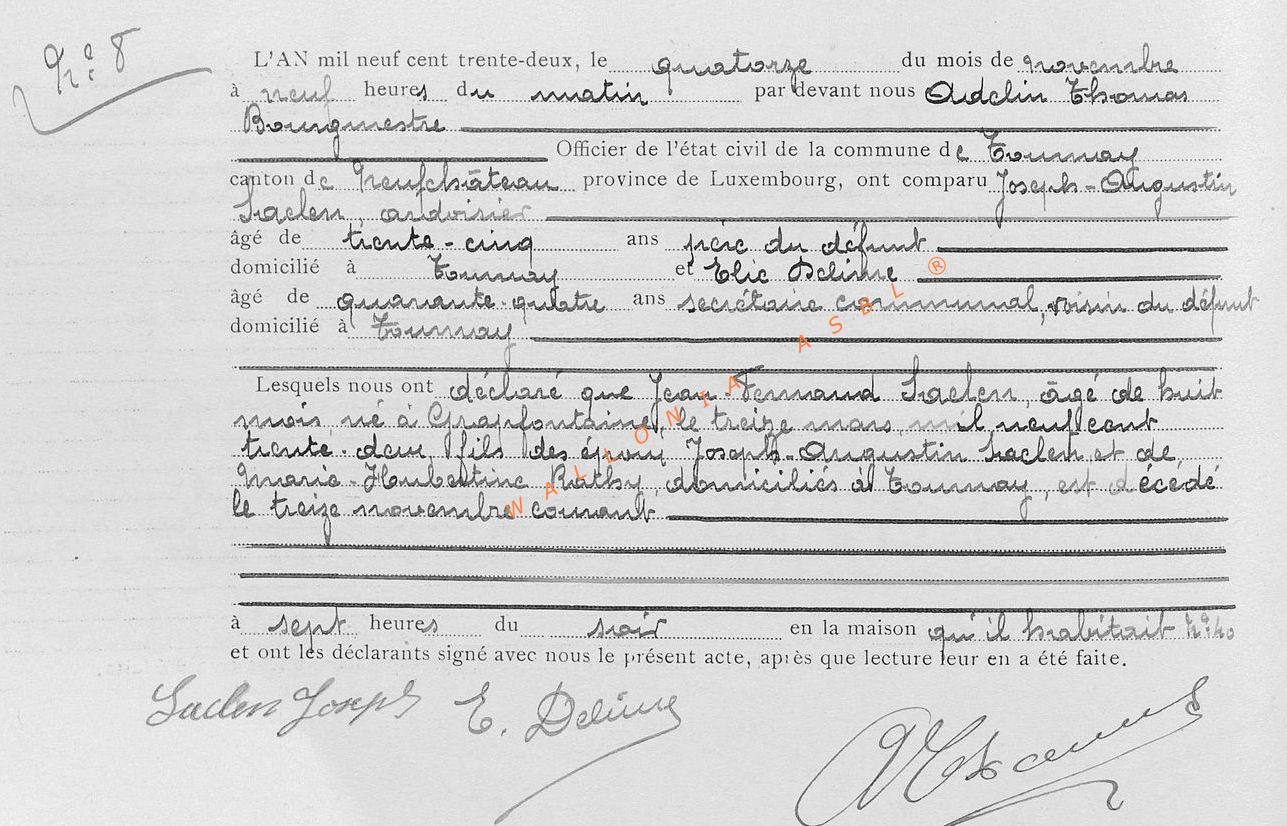 N° 8
L'AN mil neuf cent trente-deux, le quatorze du mois de novembre
à neuf heures du matin par devant nous Adelin Thomas
Bourgmestre
Officier de l'état civil de la commune de Tournay
canton de Neufchâteau province de Luxembourg, ont comparu Joseph-Augustin
Saclen, ardoisier
âgé de trente-cinq ans père du défunt
domicilié à Tournay et Elie Delime
âgé de quarante-quatre ans secrétaire communal, voisin du défunt
domicilié à Tournay
Lesquels nous ont déclaré que Jean-Fernand Saclen, âgé de huit
mois, né à Grapfontaine, le treize mars mil neuf cent
trente-deux, fils des époux Joseph-Augustin Saclen et de
Marie-Hubertine Rathy, domiciliés à Tournay, est décédé
le treize novembre courant
à sept heures du soir en la maison qu'il habitait N° 40
et ont les déclarants signé avec nous le présent acte, après que lecture leur en a été faite.
Saclen Joseph E. Delime
WALLONIA ASBL ®